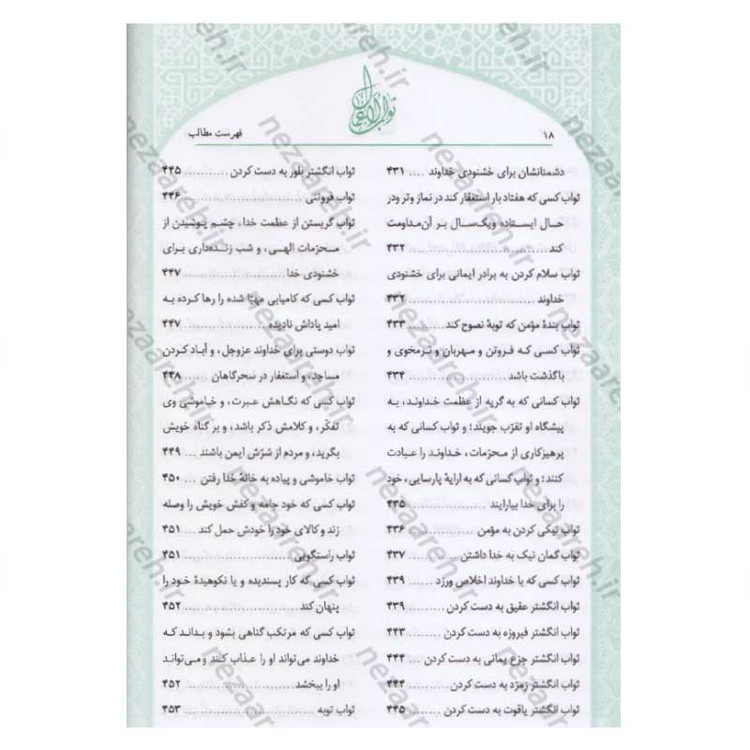 ثواب الاعمال
۱۸
فهرست مطالب
دشمنانشان برای خشنودی خداوند .... ۴۳۱
ثواب کسی که هفتاد بار استغفار کند در نماز وتر ودر
حال ایستاده ویک‌سال بر آن‌مداومت
کند ........................ ۴۳۲
ثواب سلام کردن به برادر ایمانی برای خشنودی
خداوند ........................ ۴۳۲
ثواب بندهٔ مؤمن که توبهٔ نصوح کند... ۴۳۳
ثواب کسی که فروتن و مهربان و نرمخوی و
باگذشت باشد ................. ۴۳۴
ثواب کسانی که به گریه از عظمت خداوند، به
پیشگاه او تقرّب جویند؛ و ثواب کسانی که به
پرهیزکاری از محرّمات، خداوند را عبادت
کنند؛ و ثواب کسانی که به ارایهٔ پارسایی، خود
را برای خدا بیارایند ............ ۴۳۵
ثواب نیکی کردن به مؤمن ........ ۴۳۶
ثواب گمان نیک به خدا داشتن .... ۴۳۷
ثواب کسی که با خداوند اخلاص ورزد .. ۴۳۹
ثواب انگشتر عقیق به دست کردن ..... ۴۳۹
ثواب انگشتر فیروزه به دست کردن ..... ۴۴۳
ثواب انگشتر جزع یمانی به دست کردن ... ۴۴۴
ثواب انگشتر زمرّد به دست کردن ...... ۴۴۴
ثواب انگشتر یاقوت به دست کردن ..... ۴۴۵
ثواب انگشتر بلور به دست کردن .......... ۴۴۵
ثواب فروتنی .................... ۴۴۶
ثواب گریستن از عظمت خدا، چشم پوشیدن از
محرّمات الهی، و شب زنده‌داری برای
خشنودی خدا .................. ۴۴۷
ثواب کسی که کامیابی مهیّا شده را رها کرده به
امید پاداش نادیده .............. ۴۴۷
ثواب دوستی برای خداوند عزوجل، و آباد کردن
مساجد، و استغفار در سحرگاهان ...... ۴۴۸
ثواب کسی که نگاهش عبرت، و خاموشی وی
تفکّر، و کلامش ذکر باشد، و بر گناه خویش
بگرید، و مردم از شرّش ایمن باشند ... ۴۴۹
ثواب خاموشی و پیاده به خانهٔ خدا رفتن ... ۴۵۰
ثواب کسی که خود جامه و کفش خویش را وصله
زند و کالای خود را خودش حمل کند .. ۴۵۱
ثواب راستگویی ................ ۴۵۱
ثواب کسی که کار پسندیده و یا نکوهیدهٔ خود را
پنهان کند .................... ۴۵۲
ثواب کسی که مرتکب گناهی بشود و بداند که
خداوند می‌تواند او را عذاب کند و می‌تواند
او را ببخشد .................. ۴۵۲
ثواب توبه .................... ۴۵۳
nezaareh.ir